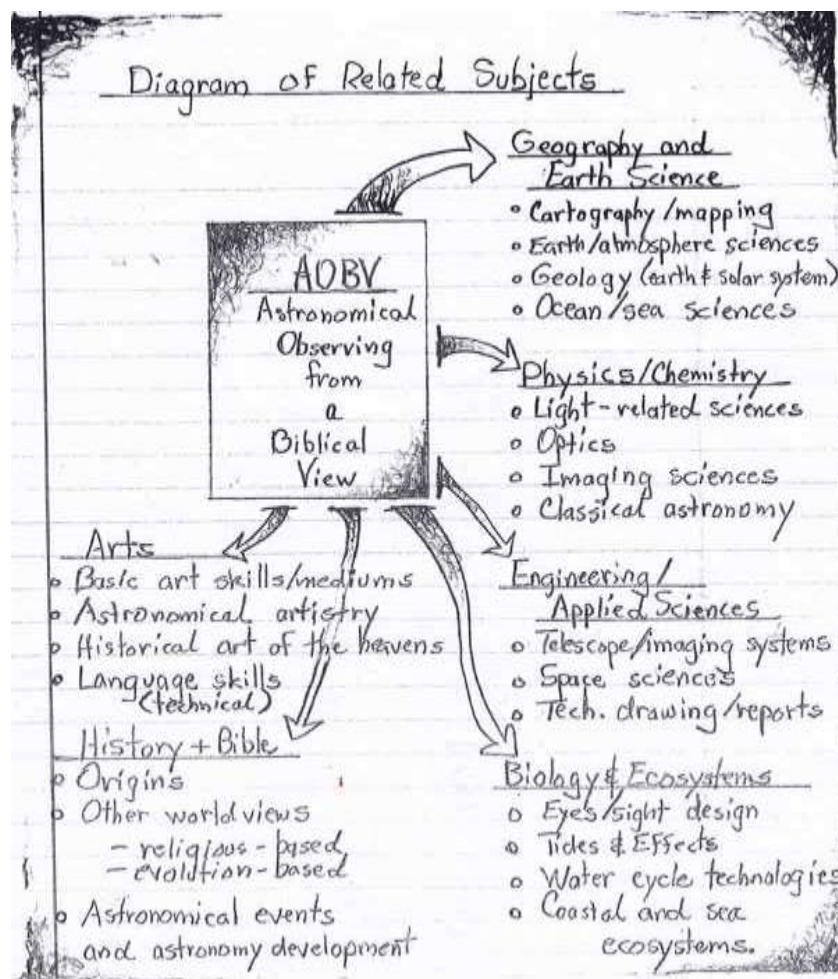 Diagram of Related Subjects
AOBV
Astronomical
Observing
from
a
Biblical
View
Geography and
Earth Science
• Cartography/mapping
• Earth/atmosphere sciences
• Geology (earth & solar system)
• Ocean/sea sciences
Physics/Chemistry
• Light-related sciences
• Optics
• Imaging sciences
• Classical astronomy
Engineering/
Applied Sciences
• Telescope/imaging systems
• Space sciences
• Tech. drawing/reports
Biology & Ecosystems
• Eyes/sight design
• Tides & Effects
• Water cycle technologies
• Coastal and sea
ecosystems.
Arts
• Basic art skills/mediums
• Astronomical artistry
• Historical art of the heavens
• Language skills
(technical)
History + Bible
• Origins
• Other world views
- religious-based
- evolution-based
• Astronomical events
and astronomy development